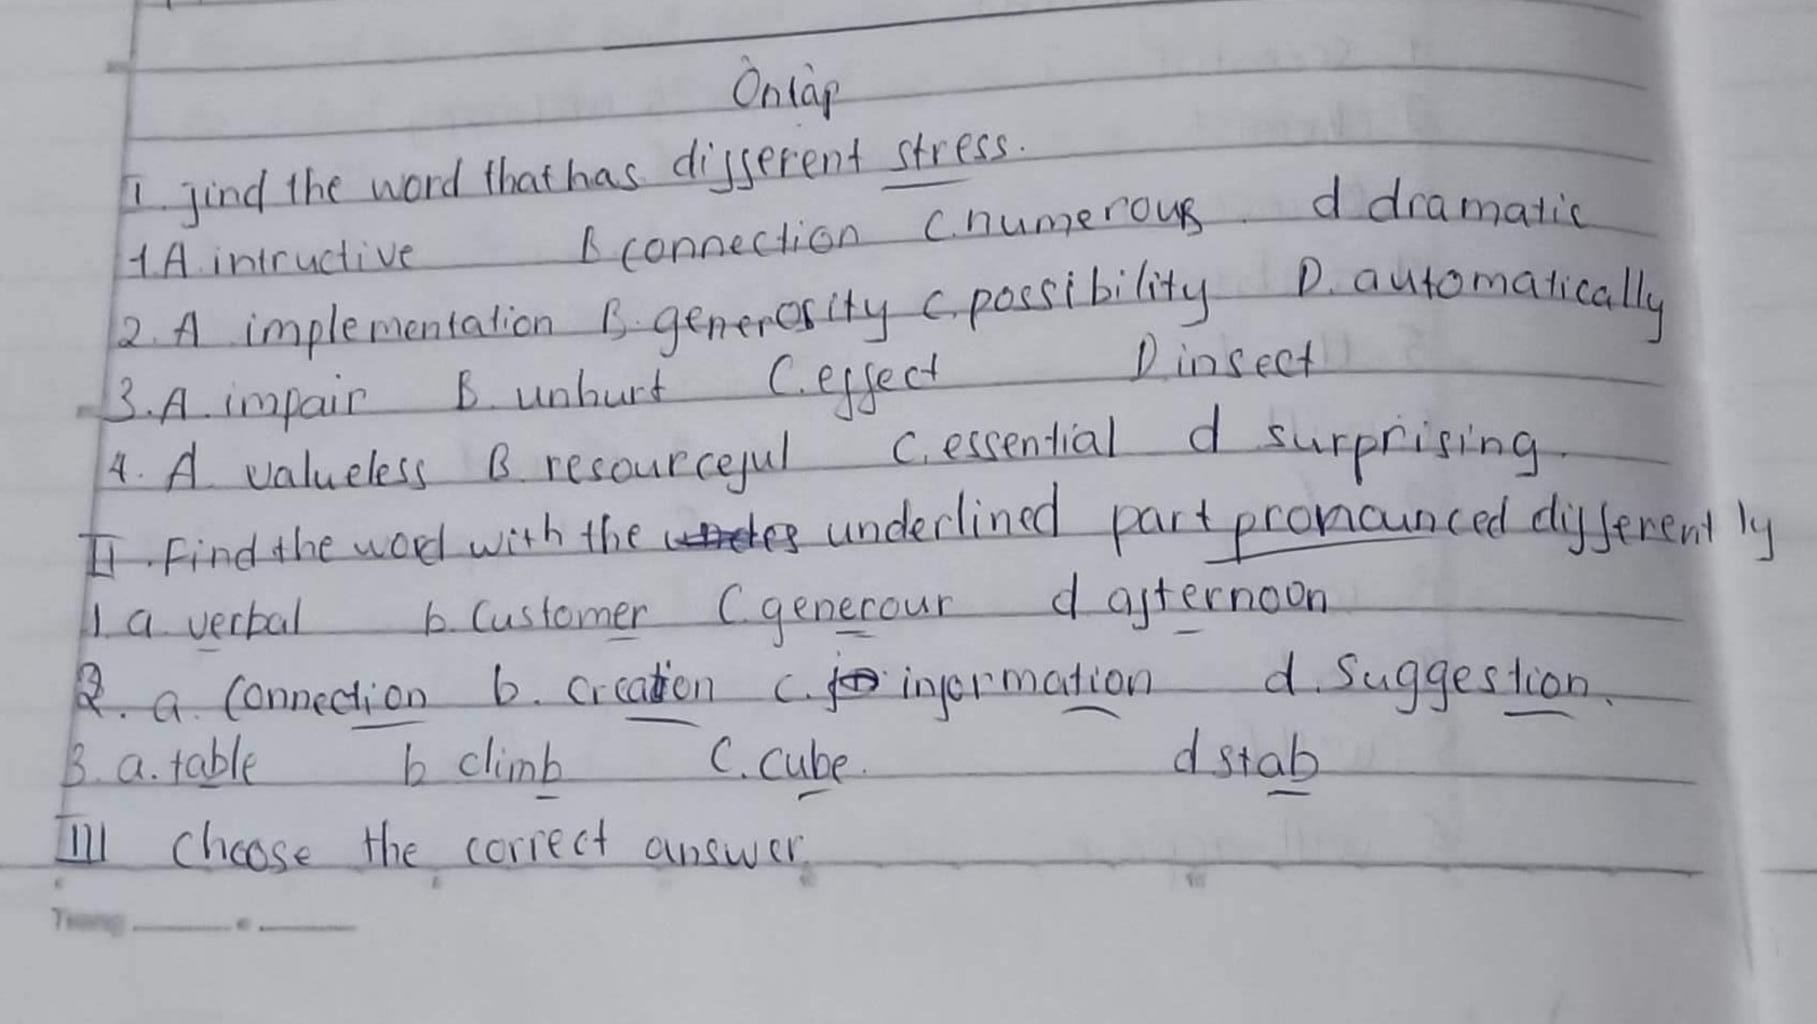 Ôn tập
I. find the word that has different stress.
1.A. intructive B connection C. numerous d dramatic
2. A implementation B. generosity C. possibility D. automatically
3. A. impair B. unhurt C. effect D insect
4. A valueless B. resourceful C. essential d surprising.
II. Find the word with the underlined part pronounced differently
1. a. verbal b. Customer C generour d afternoon
2. a. Connection b. creation c. information d. Suggestion.
3. a. table b climb C. cube. d stab
III choose the correct answer